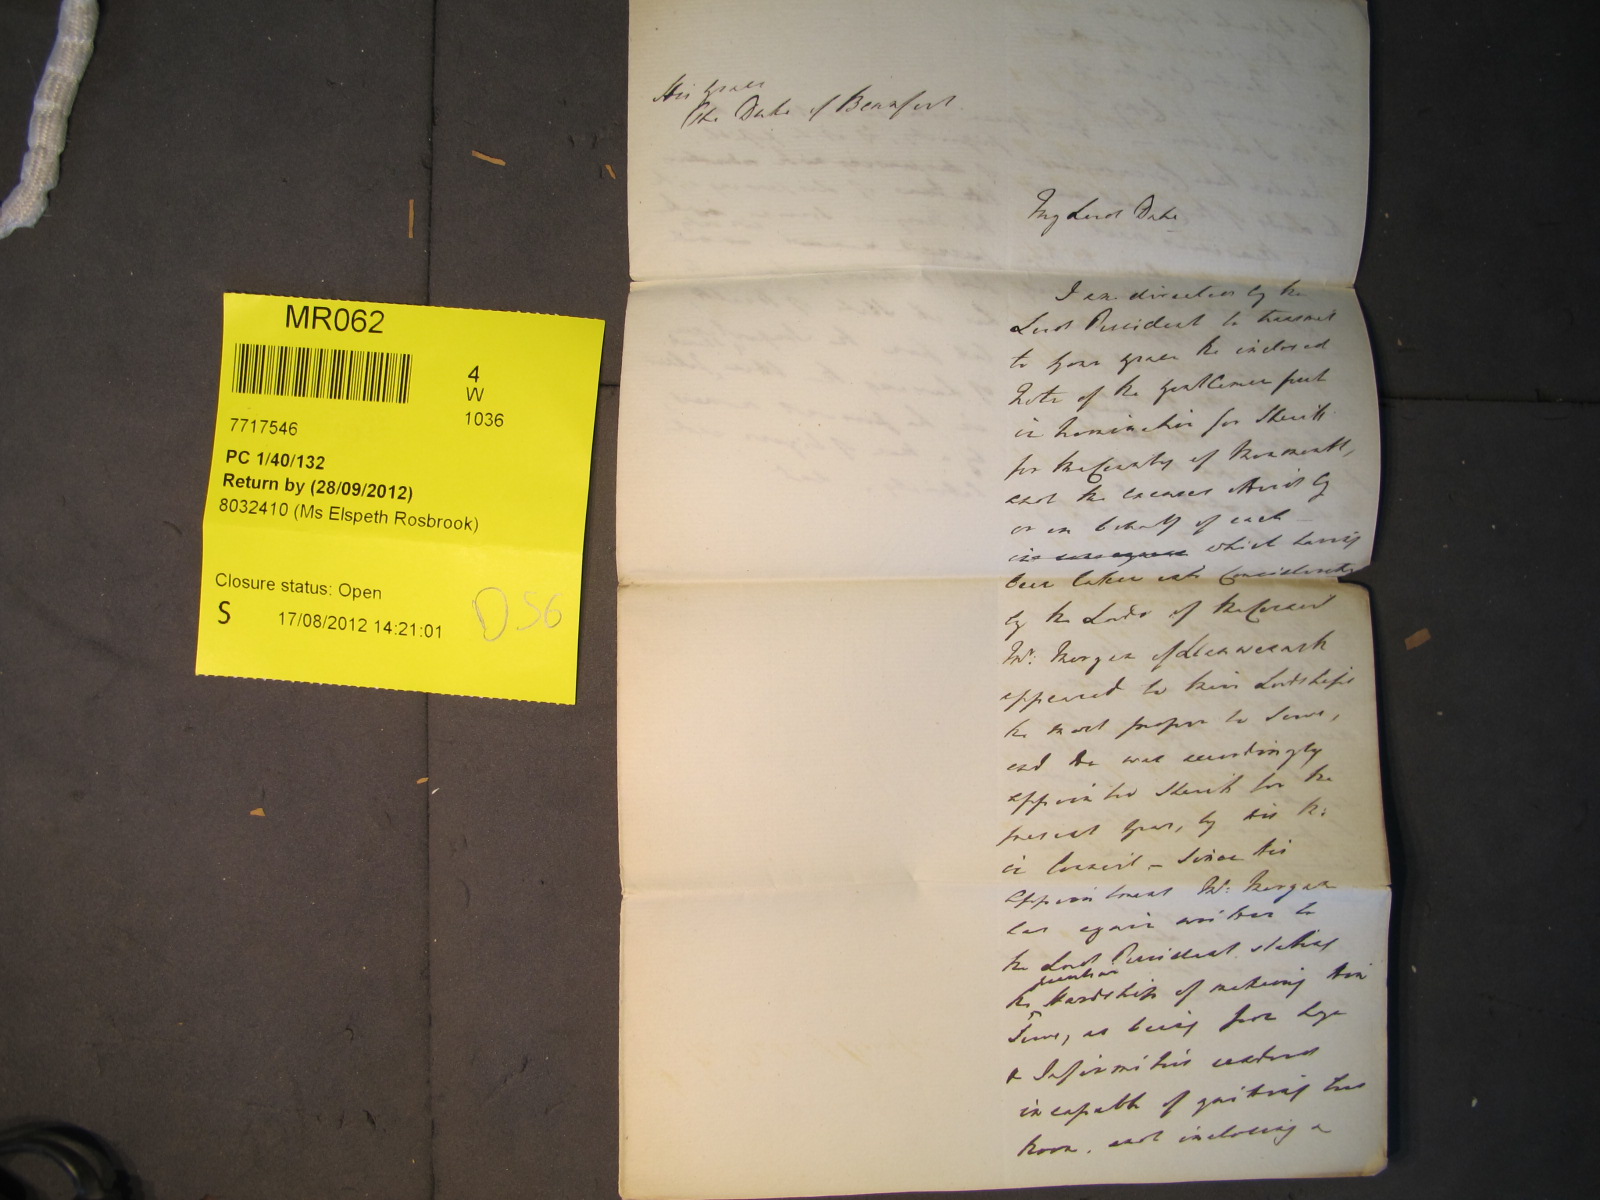 MR062
4
W
1036
7717546
PC 1/40/132
Return by (28/09/2012)
8032410 (Ms Elspeth Rosbrook)
Closure status: Open
S 17/08/2012 14:21:01
D56
His Grace
The Duke of Beaufort
My Lord Duke
I am directed by the
Lord President to transmit
to your Grace the inclosed
Note of the Gentlemen put
in Nomination for Sheriff
for the County of Monmouth,
and the excuses offered by
or on behalf of each
which having
been taken into Consideration
by the Lords of the Council
Mr: Morgan of
appeared to their Lordships
the most proper to serve,
and He was accordingly
appointed Sheriff for the
present year, by His M:
in Council – Since his
appointment Mr: Morgan
has again written to
the Lord President stating
the peculiar Hardship of making him
serve, as being from Age
& Infirmities rendered
incapable of quitting his
Room. and inclosing a